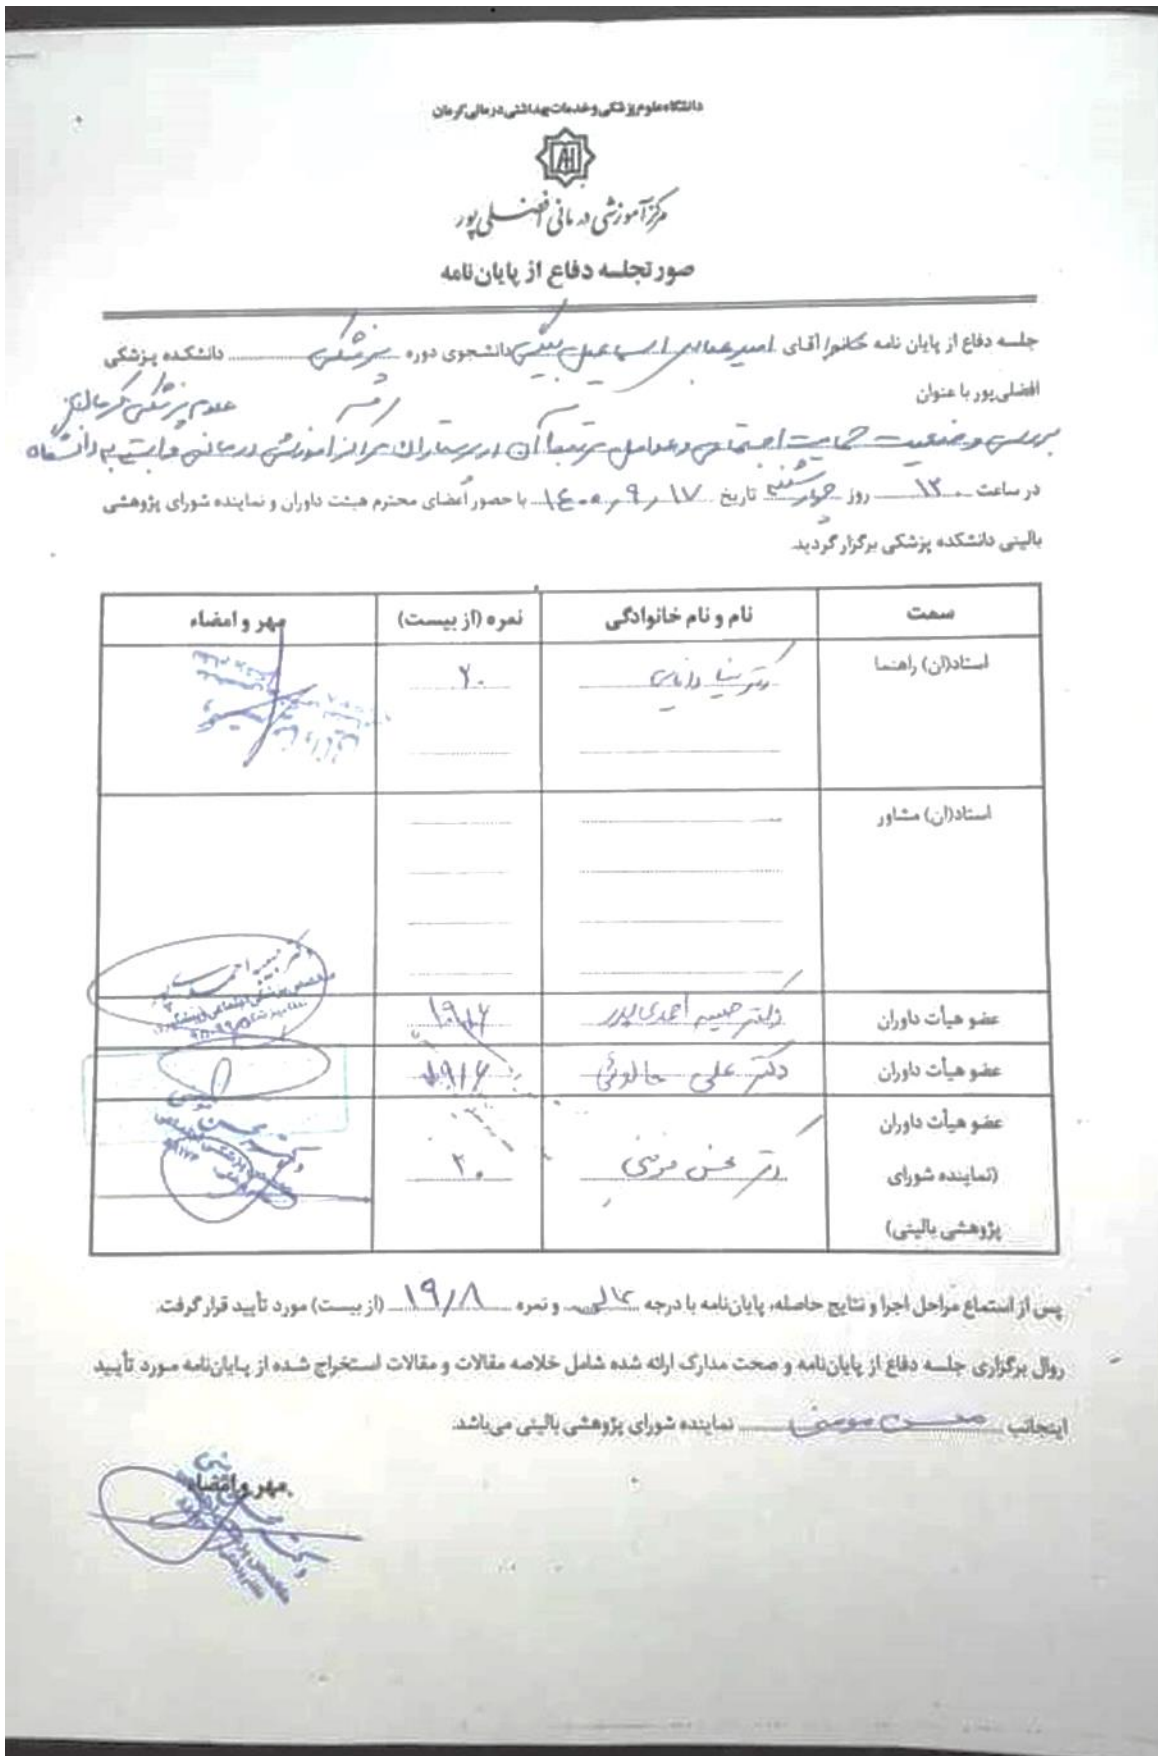 دانشگاه علوم پزشکی و خدمات بهداشتی درمانی کرمان
مرکز آموزشی درمانی افضلی پور
صورتجلسه دفاع از پایان‌نامه
جلسه دفاع از پایان نامه خانم/ آقای امیرعباس اسماعیل بیگی دانشجوی دوره پزشکی دانشکده پزشکی
افضلی‌پور با عنوان
علوم پزشکی کرمان
بررسی وضعیت حمایت اجتماعی و عوامل مرتبط با آن در پرستاران مراکز آموزشی درمانی وابسته به دانشگاه
در ساعت ۱۲ روز چهارشنبه تاریخ ۱۴۰۰/۹/۱۷ با حضور اعضای محترم هیئت داوران و نماینده شورای پژوهشی
بالینی دانشکده پزشکی برگزار گردید.
سمت نام و نام خانوادگی نمره (از بیست) مهر و امضاء
استاد(ان) راهنما دکتر ۲۰
استاد(ان) مشاور
عضو هیأت داوران دکتر احمدی پور
عضو هیأت داوران دکتر علی خالوئی
عضو هیأت داوران
(نماینده شورای دکتر محسن مومنی ۲۰
پژوهشی بالینی)
پس از استماع مراحل اجرا و نتایج حاصله، پایان‌نامه با درجه عالی و نمره ۱۹/۸ (از بیست) مورد تأیید قرار گرفت.
روال برگزاری جلسه دفاع از پایان‌نامه و صحت مدارک ارائه شده شامل خلاصه مقالات و مقالات استخراج شده از پایان‌نامه مورد تأیید
اینجانب محسن مومنی نماینده شورای پژوهشی بالینی می‌باشد.
مهر و امضاء